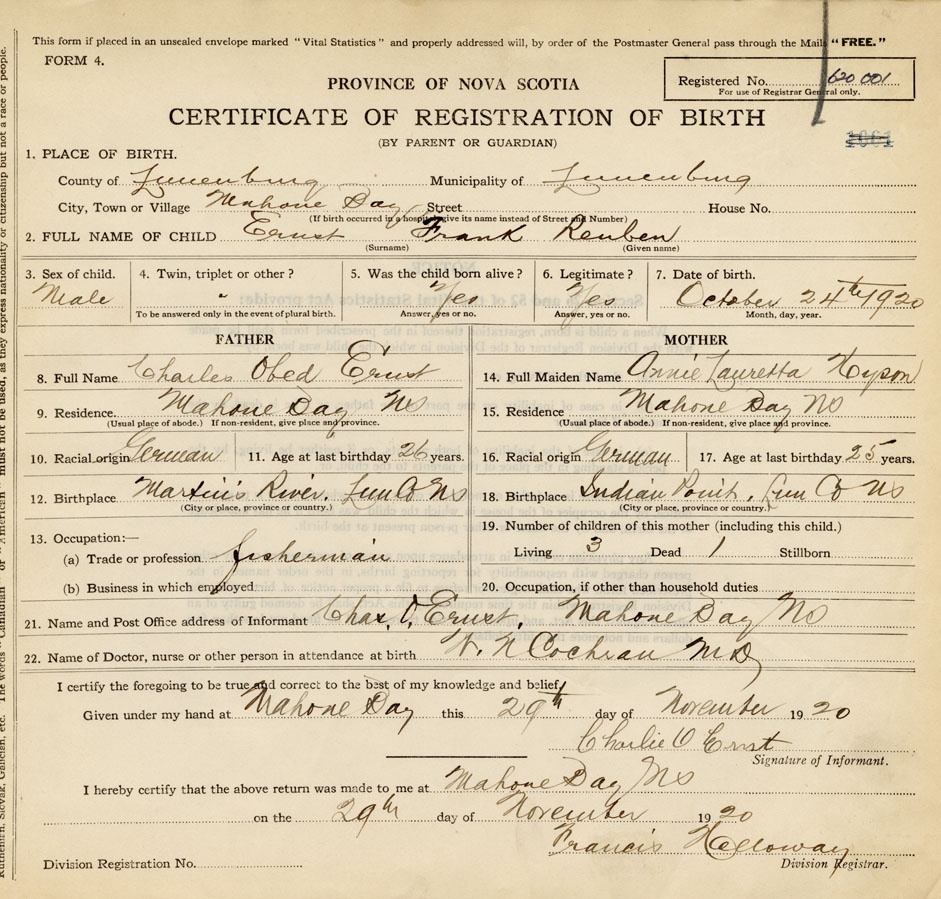 This form if placed in an unsealed envelope marked "Vital Statistics" and properly addressed will, by order of the Postmaster General pass through the Mails "FREE."
FORM 4.
Registered No. 620 001
For use of Registrar General only.
PROVINCE OF NOVA SCOTIA
CERTIFICATE OF REGISTRATION OF BIRTH
(BY PARENT OR GUARDIAN)
1061
1. PLACE OF BIRTH.
County of Lunenburg Municipality of Lunenburg
City, Town or Village Mahone Bay Street House No.
(If birth occurred in a hospital give its name instead of Street and Number)
2. FULL NAME OF CHILD Ernst Frank Reuben
(Surname) (Given name)
3. Sex of child. 4. Twin, triplet or other? 5. Was the child born alive? 6. Legitimate? 7. Date of birth.
Male " Yes Yes October 24th 1920
To be answered only in the event of plural birth. Answer, yes or no. Answer, yes or no. Month, day, year.
FATHER MOTHER
8. Full Name Charles Obed Ernst 14. Full Maiden Name Annie Lauretta Hyson
9. Residence. Mahone Bay NS 15. Residence Mahone Bay NS
(Usual place of abode.) If non-resident, give place and province. (Usual place of abode.) If non-resident, give place and province.
10. Racial origin German 11. Age at last birthday 26 years. 16. Racial origin German 17. Age at last birthday 25 years.
12. Birthplace Martin's River, Lun Co NS 18. Birthplace Indian Point, Lun Co NS
(City or place, province or country.) (City or place, province or country.)
13. Occupation:— 19. Number of children of this mother (including this child.)
(a) Trade or profession fisherman Living 3 Dead 1 Stillborn
(b) Business in which employed 20. Occupation, if other than household duties
21. Name and Post Office address of Informant Chas. O. Ernst, Mahone Bay NS
22. Name of Doctor, nurse or other person in attendance at birth W. N Cochran MD
I certify the foregoing to be true and correct to the best of my knowledge and belief.
Given under my hand at Mahone Bay this 29th day of November 1920
Charlie O Ernst
Signature of Informant.
I hereby certify that the above return was made to me at Mahone Bay NS
on the 29th day of November 1920
Francis Holloway
Division Registration No. Division Registrar.
Ruthenian, Slovak, Galician, etc. The words "Canadian" or "American" must not be used, as they express nationality or citizenship but not a race or people.